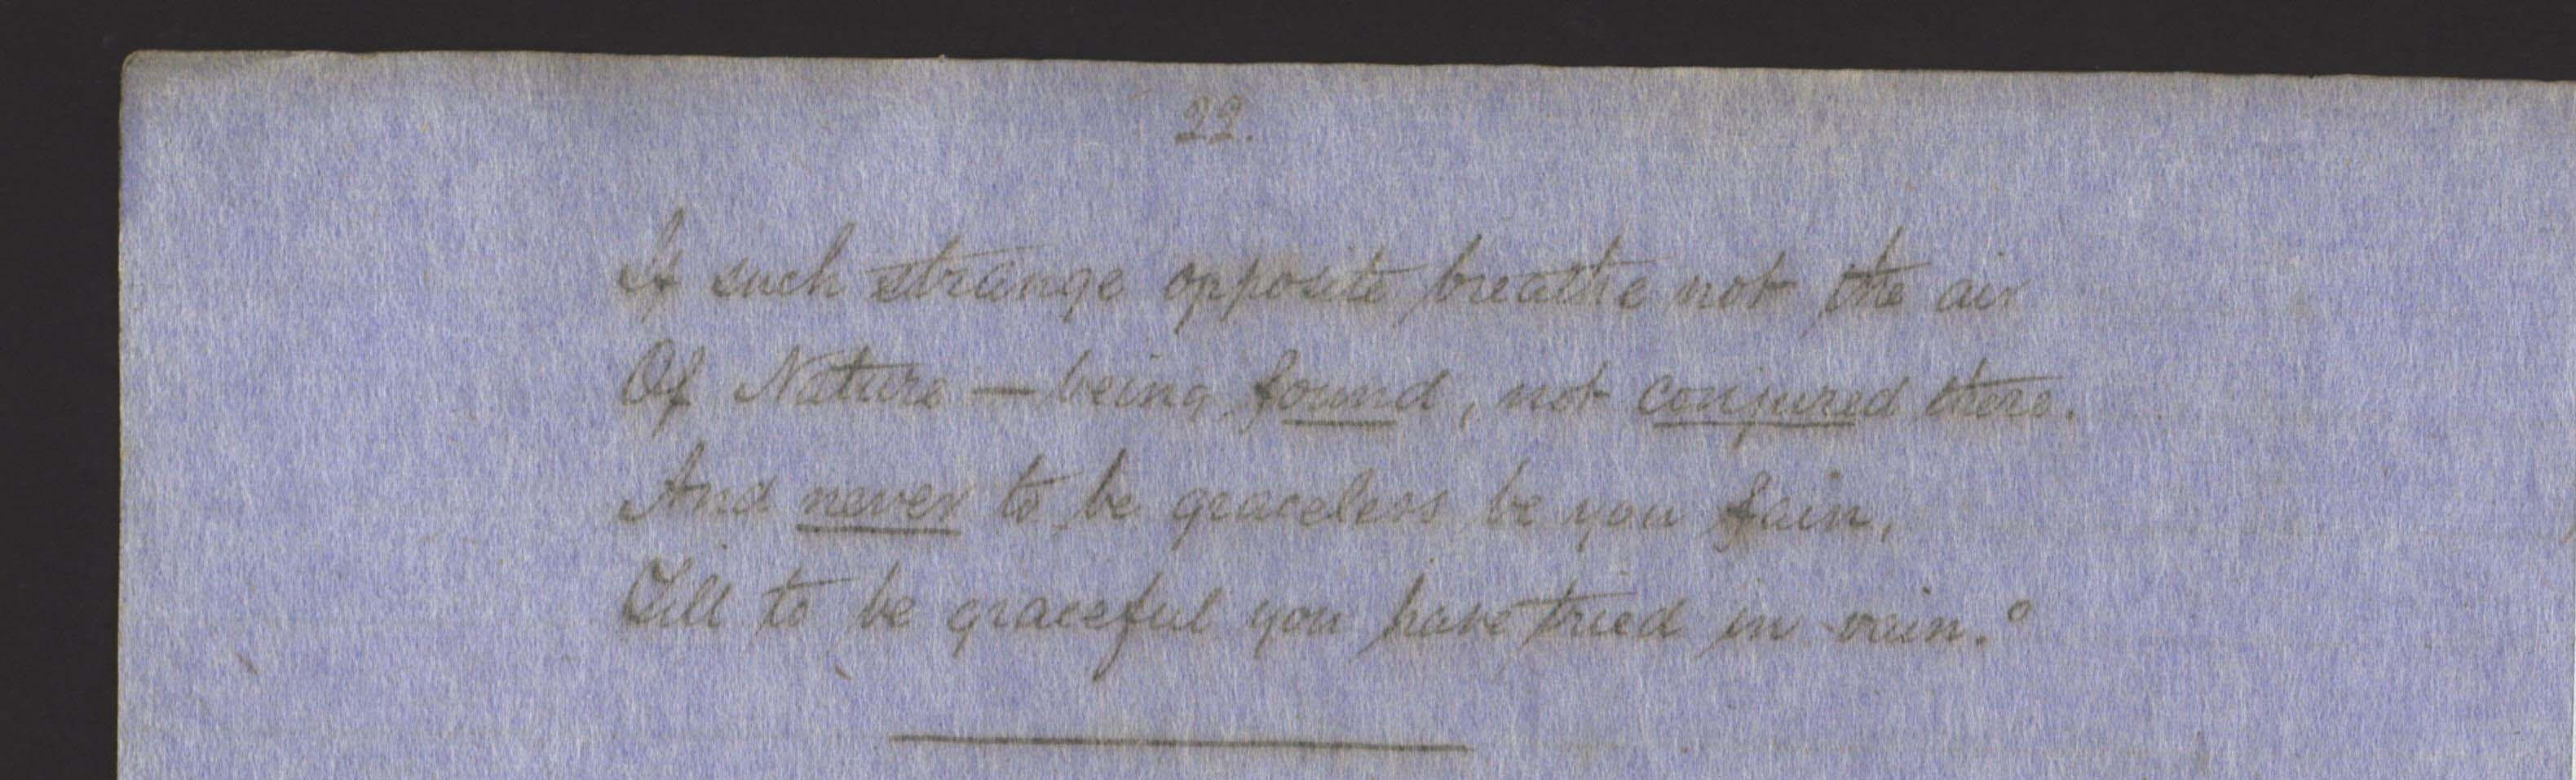 22.
If such strange opposite breathe not the air
Of Nature — being found, not conjured there.
And never to be graceless be you fain,
Till to be graceful you have tried in vain.°